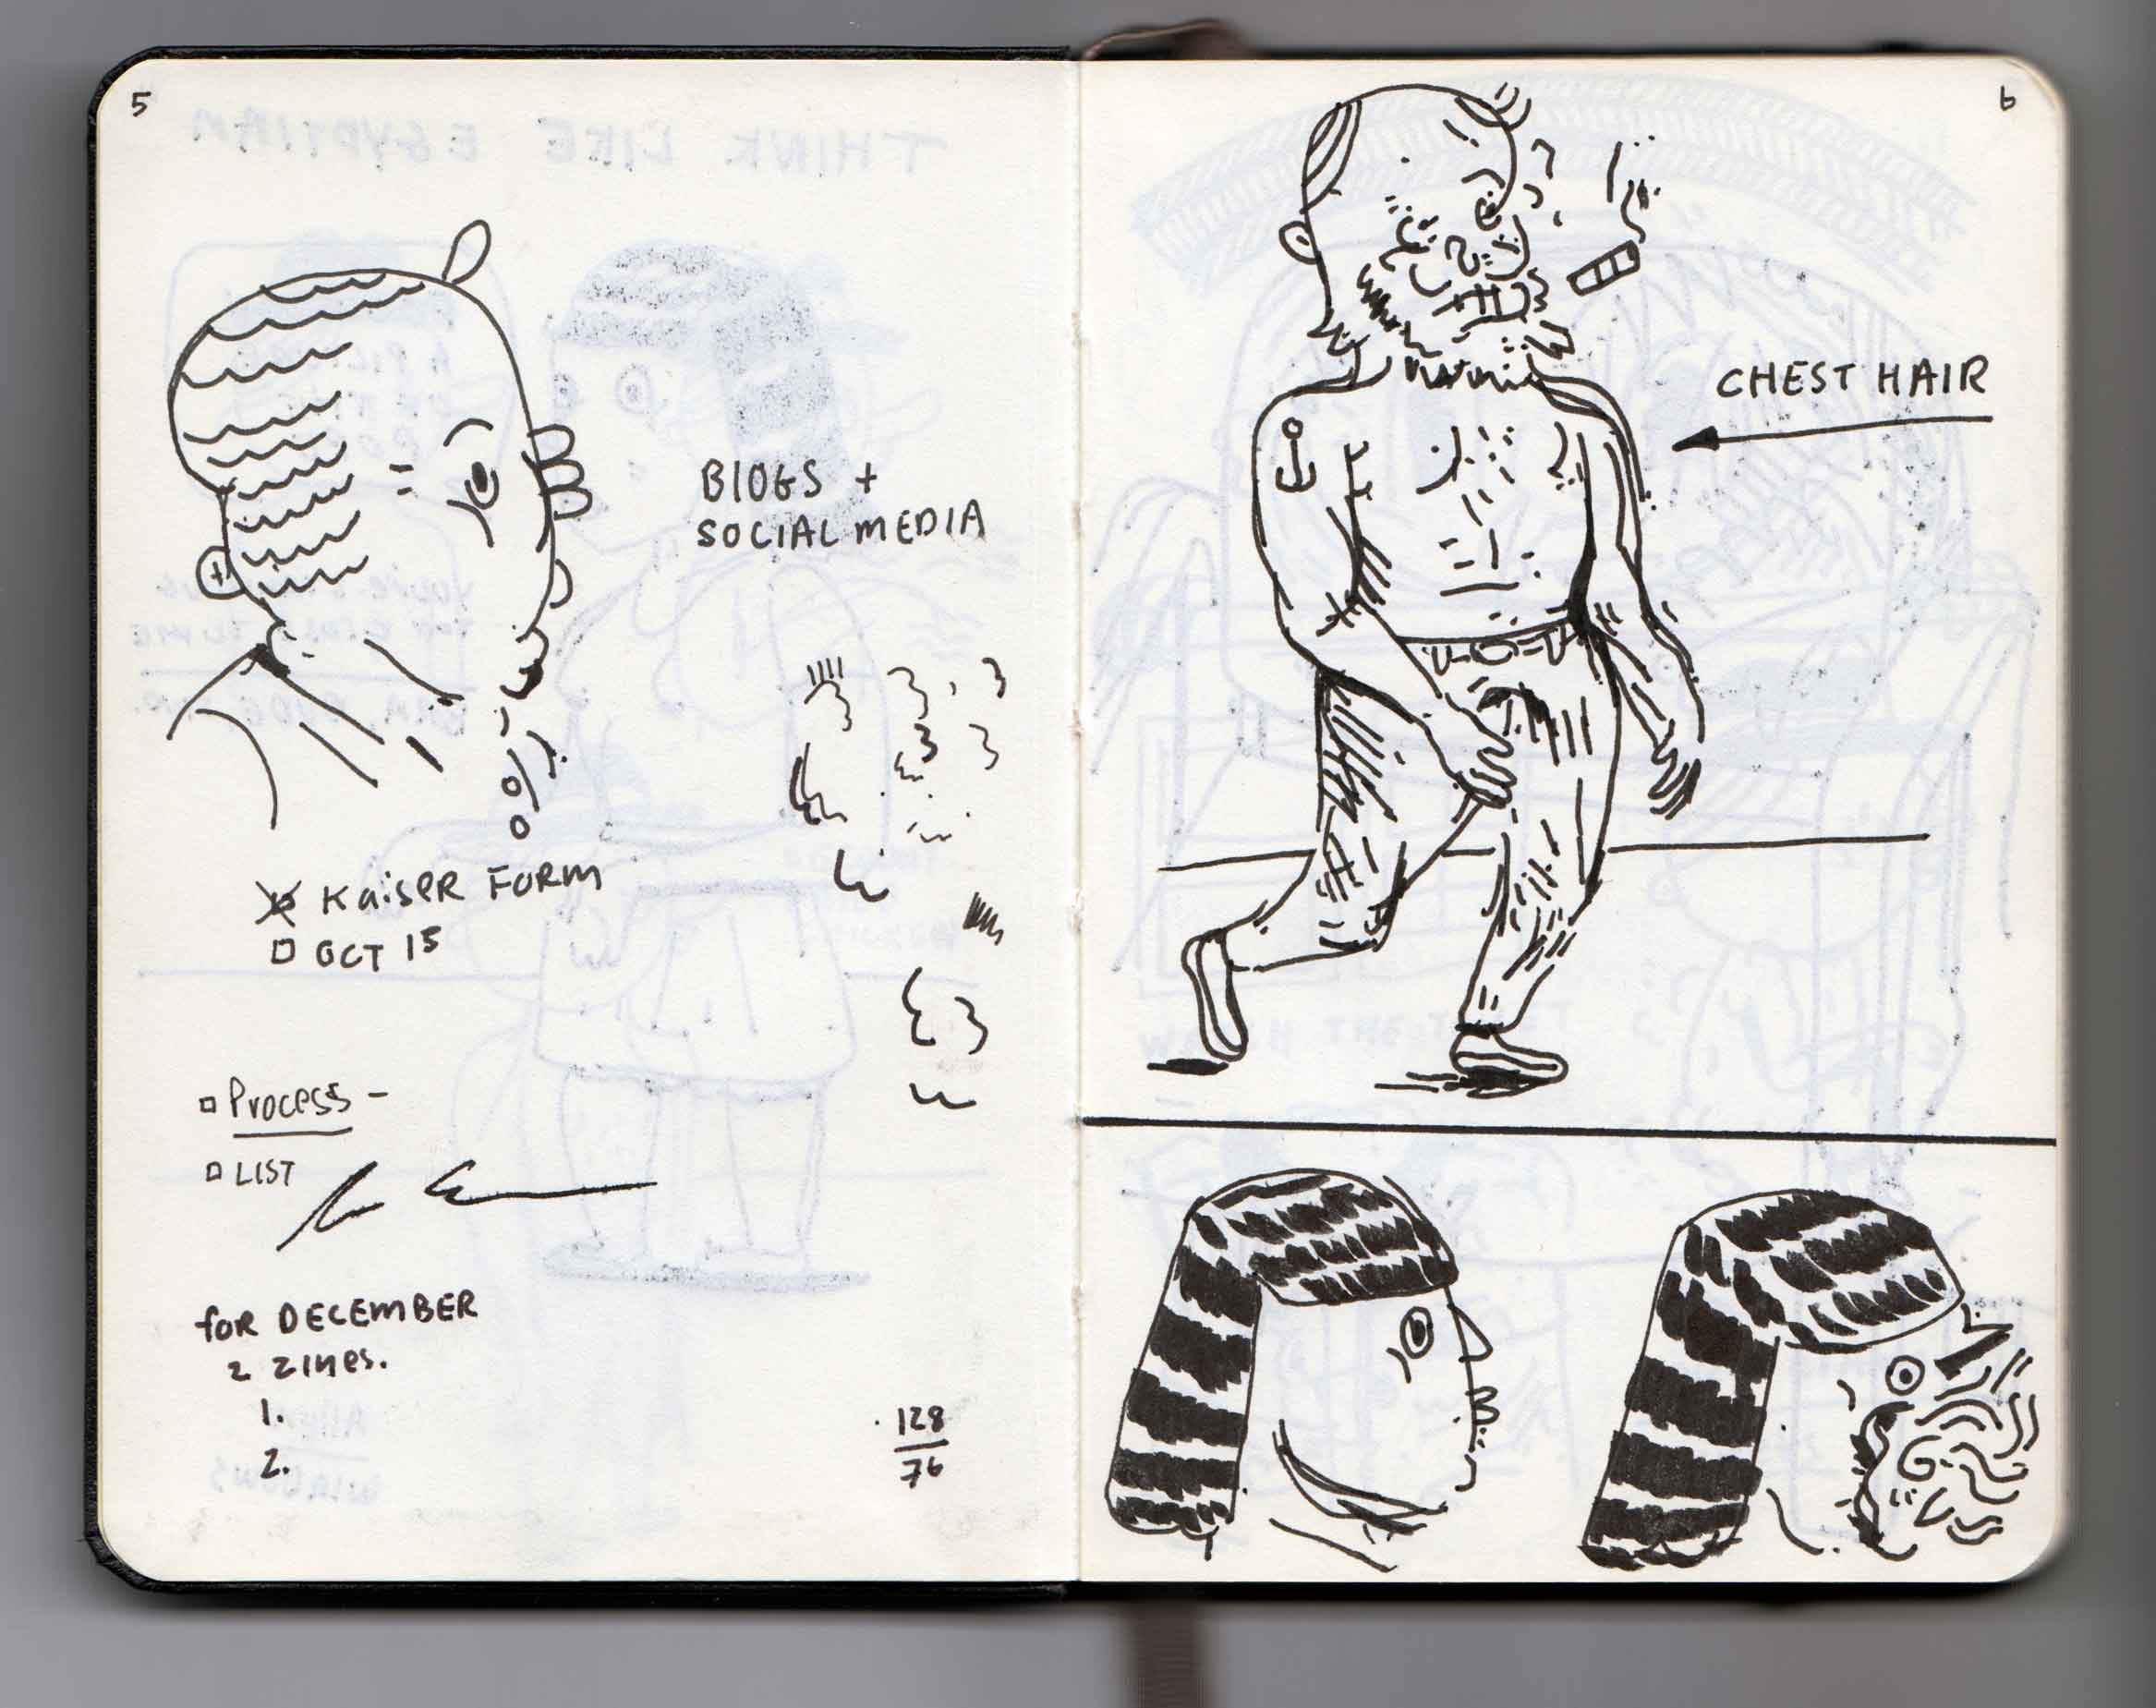 5
BLOGS +
SOCIAL MEDIA
KaiseR FORM
OCT 15
Process -
LIST
foR DECEMBER
2 ZINes.
1.
2.
128
76
6
CHEST HAIR